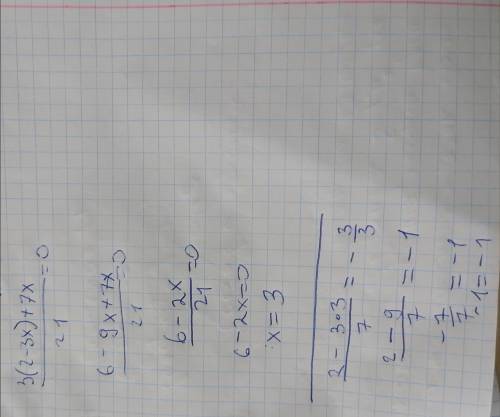 3(2-3x)+7x/21=0
6-9x+7x/21=0
6-2x/21=0
6-2x=0
x=3
2-3·3/7=-3/3
2-9/7=-1
-7/7=-1
-1=-1